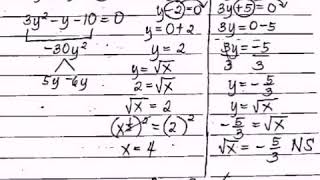 3y² - y - 10 = 0
-30y²
5y -6y
y - 2 = 0
y = 0 + 2
y = 2
y = √x
2 = √x
√x = 2
(x^½)² = (2)²
x = 4
3y + 5 = 0
3y = 0 - 5
3y = -5
3 3
y = -5/3
y = √x
-5/3 = √x
√x = -5/3 NS